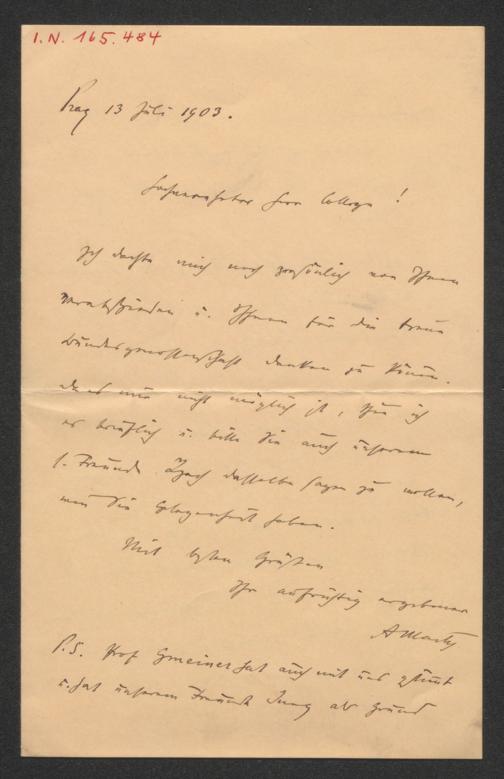 I.N. 165.484
Prag 13 Juli 1903.
Hochverehrter Herr College!
Ich dachte mich noch persönlich von Ihnen
verabschieden u. Ihnen für die treue
Bundesgenossenschaft danken zu können.
Da es nun nicht möglich ist, thu ich
es brieflich u. bitte Sie auch unserem
l. Freunde dasselbe sagen zu wollen,
wenn Sie Gelegenheit haben.
Mit besten Grüßen
Ihr aufrichtig ergebener
A Marty
P.S. Prof Gmeiner hat auch mit uns gestimmt
u. hat unserem Freunde Jung als Grund